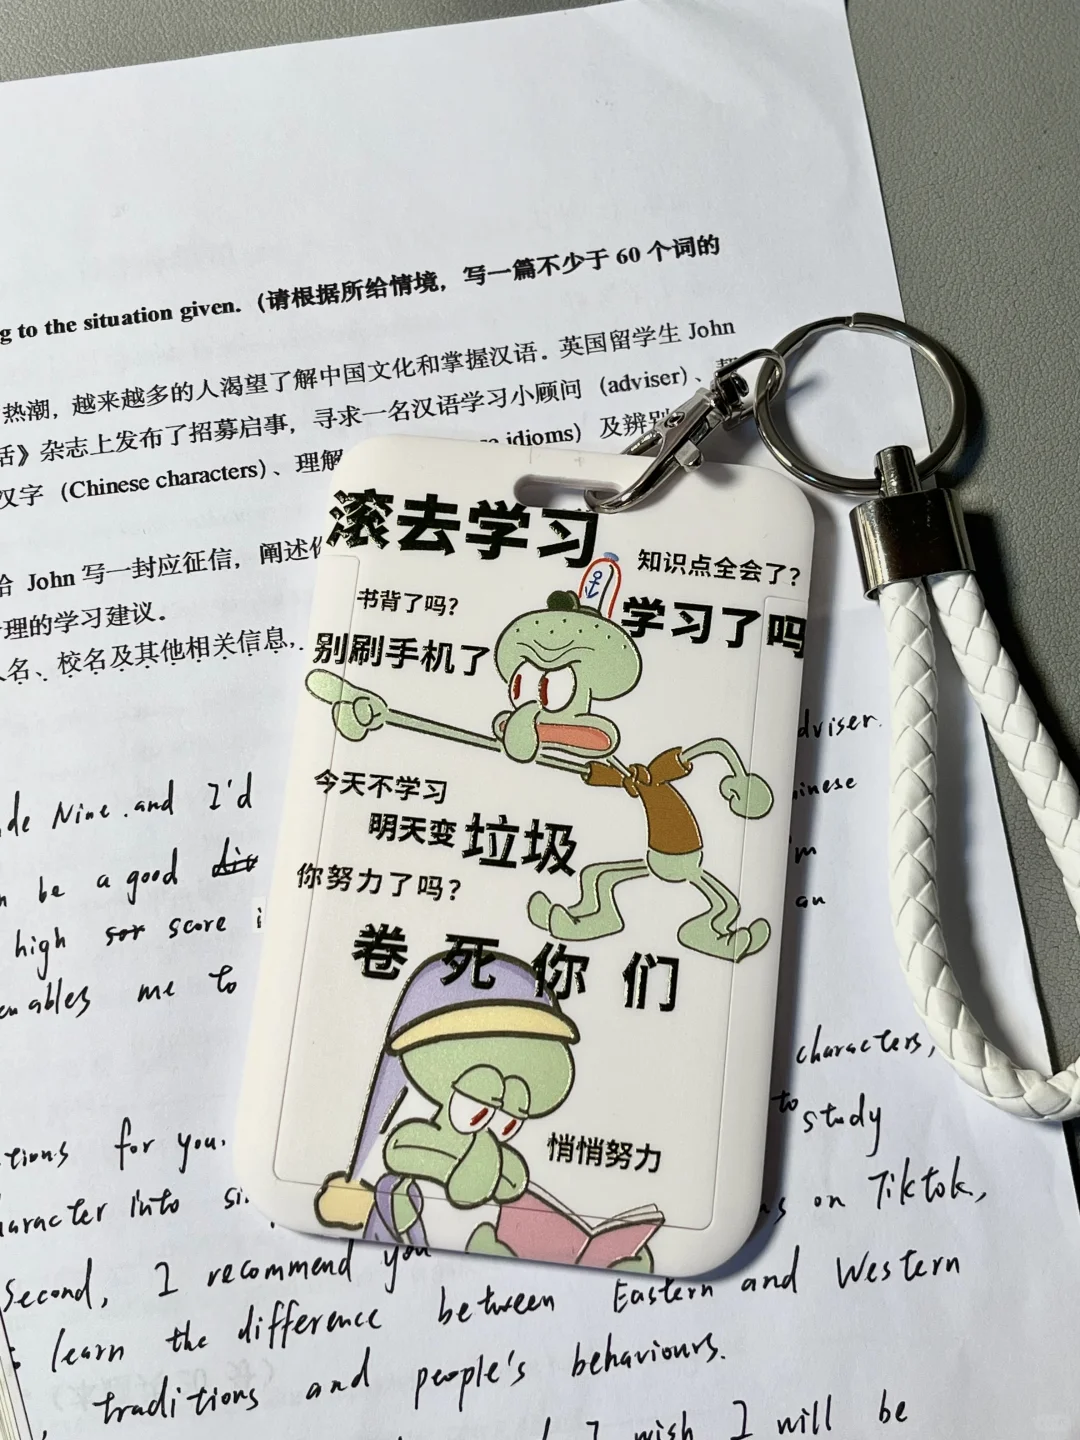 g to the situation given.（请根据所给情境，写一篇不少于 60 个词的
热潮，越来越多的人渴望了解中国文化和掌握汉语。英国留学生 John
话》杂志上发布了招募启事，寻求一名汉语学习小顾问（adviser）、
汉字（Chinese characters）、理解 idioms）及辨别
给 John 写一封应征信，阐述
理的学习建议。
人名、校名及其他相关信息，
滚去学习
知识点全会了？
书背了吗？
学习了吗
别刷手机了
今天不学习
明天变垃圾
你努力了吗？
卷死你们
悄悄努力
adviser.
Nine. and I'd
be a good
high score
me to
an
characters,
for you.
to study
character into
on Tiktok,
Second, I recommend you
learn the difference between Eastern and Western
traditions and people's behaviours.
I wish I will be